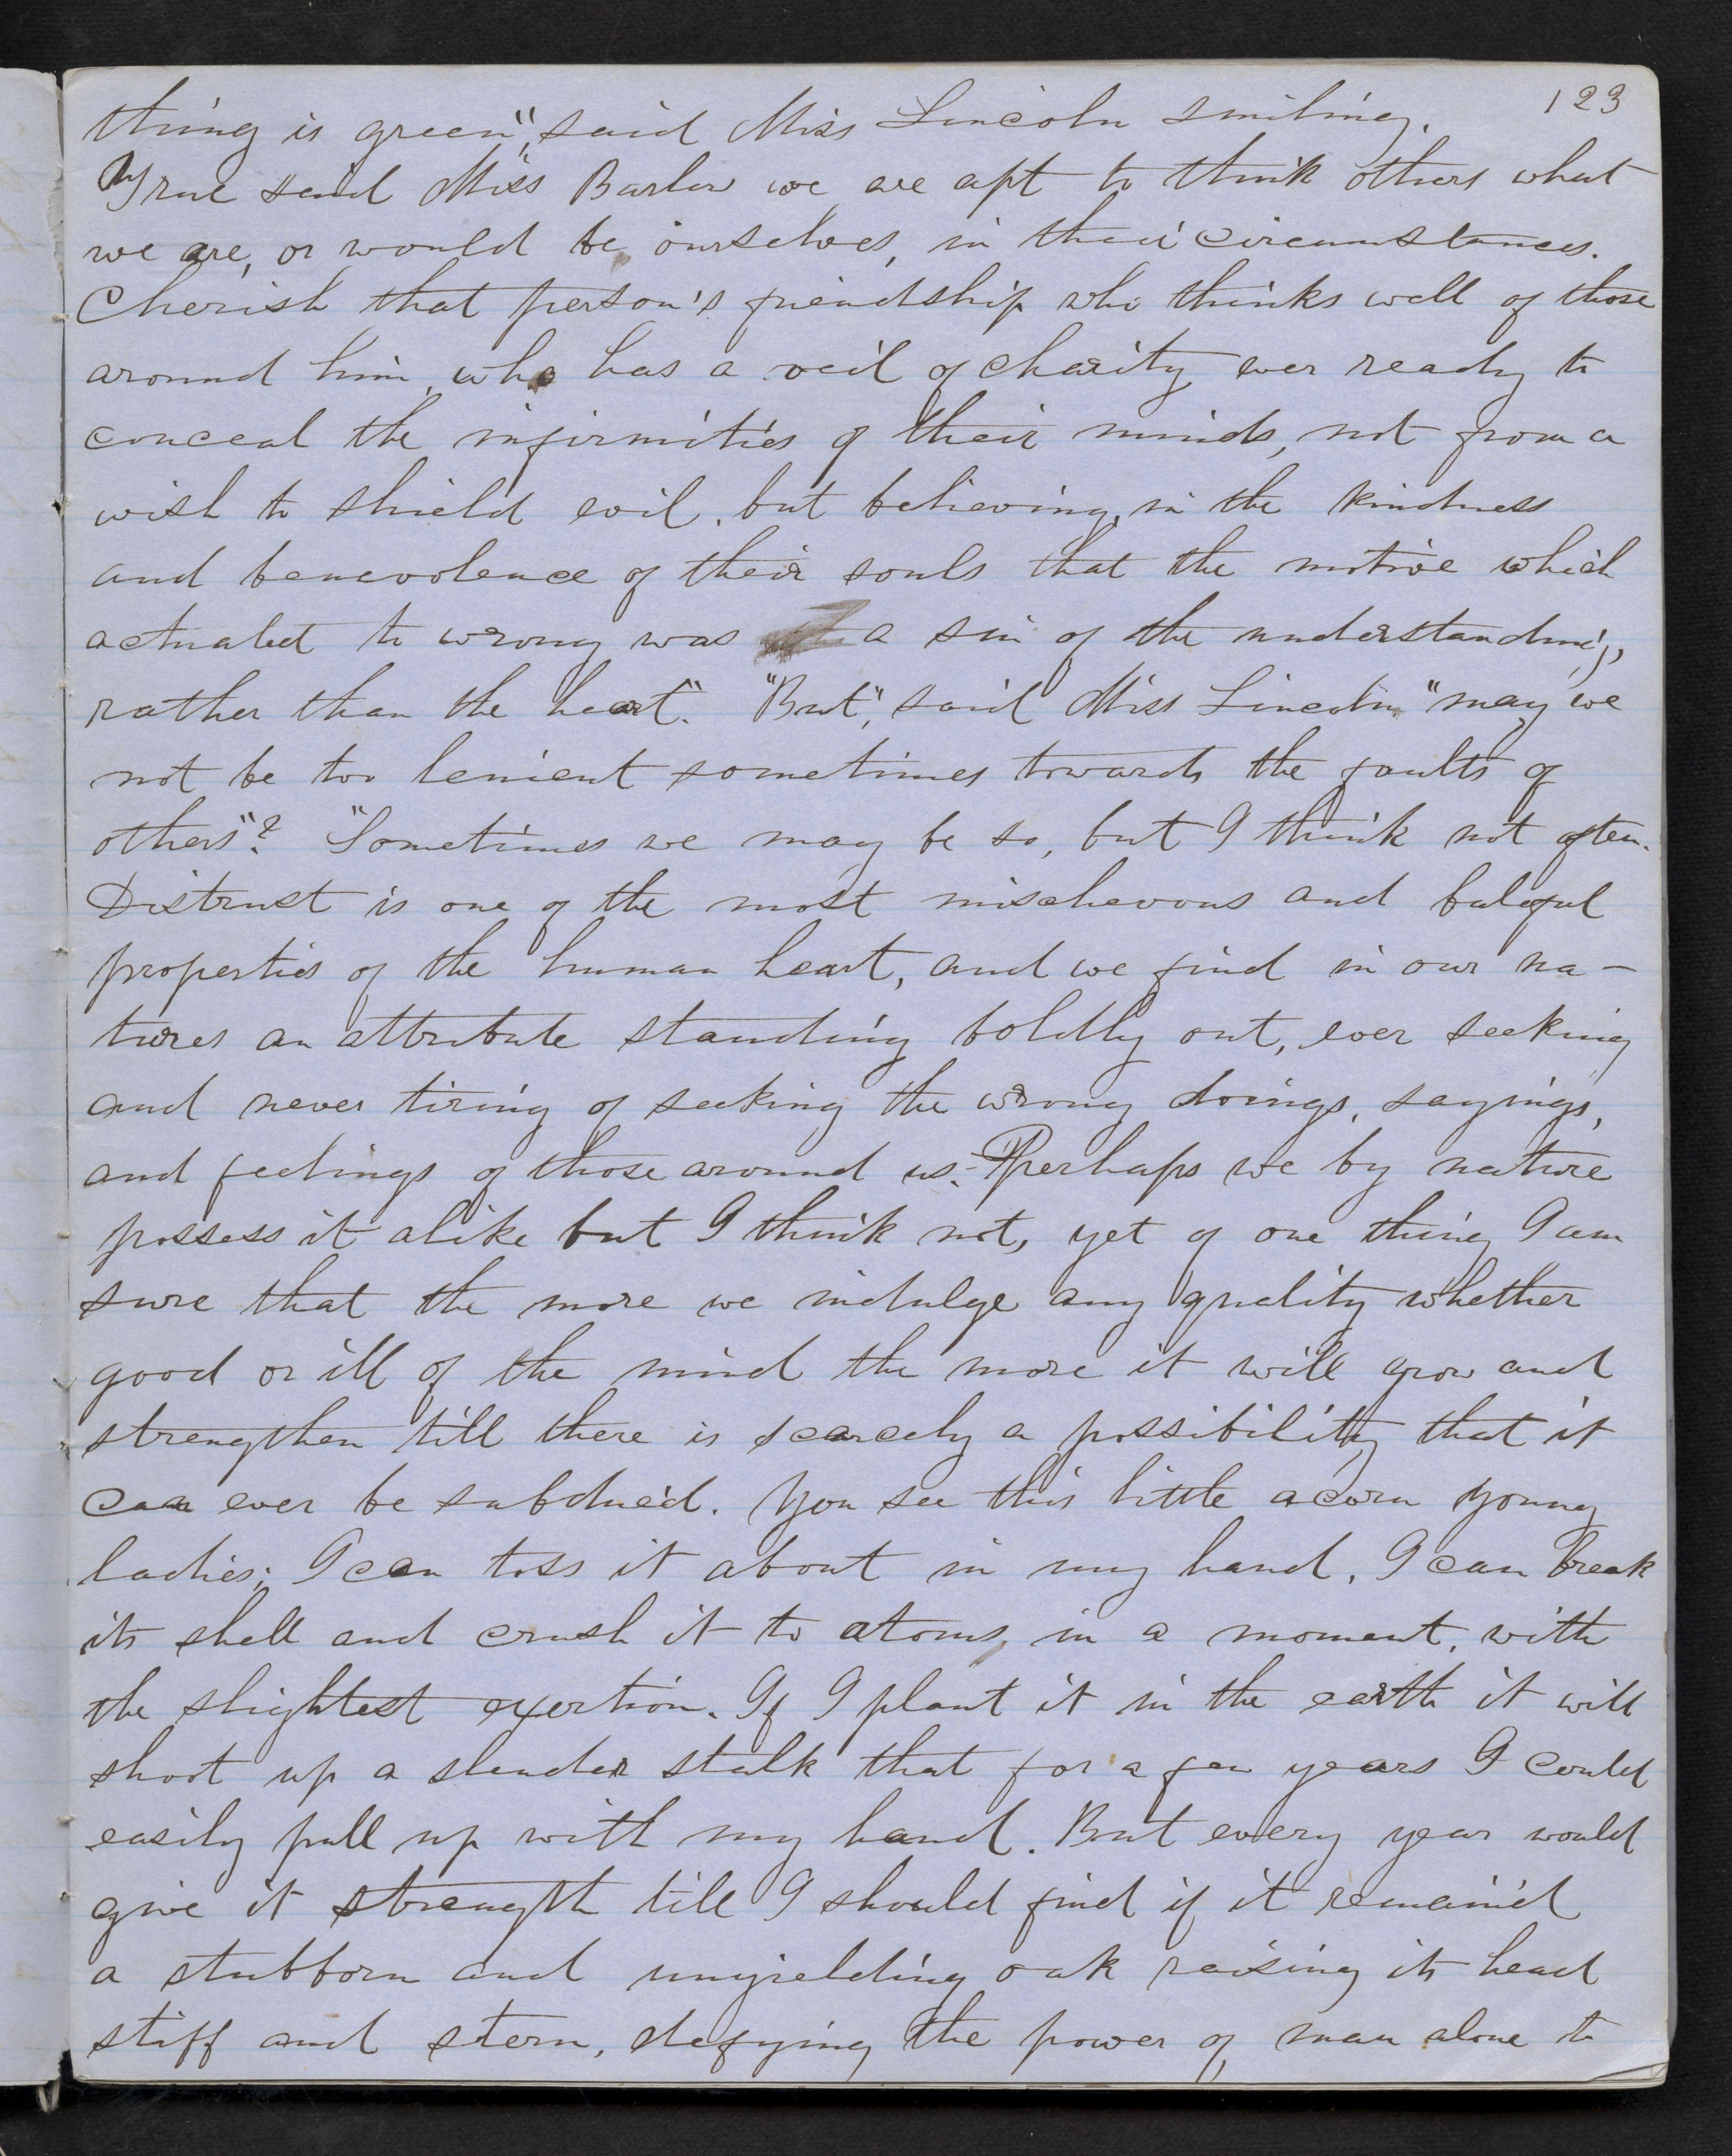 123
thing is green", said Miss Lincoln smiling.
True said Miss Barlow we are apt to think others what
we are, or would be ourselves, in their circumstances.
Cherish that person's friendship who thinks well of those
around him, who has a veil of charity ever ready to
conceal the infirmities of their minds, not from a
wish to shield evil, but believing, in the kindness
and benevolence of their souls that the motive which
actuated to wrong was a sin of the understanding,
rather than the heart". "But", said Miss Lincoln, "may we
not be too lenient sometimes towards the faults of
others"? "Sometimes we may be so, but I think not often.
Distrust is one of the most mischevous and baleful
properties of the human heart, and we find in our na-
tures an attribute standing boldly out, ever seeking
and never tiring of seeking the wrong doings, sayings,
and feelings of those around us. Perhaps we by nature
possess it alike but I think not, yet of one thing I am
sure that the more we indulge any quality whether
good or ill of the mind the more it will grow and
strengthen till there is scarcely a possibility that it
can ever be subdued. You see this little acorn young
ladies; I can toss it about in my hand, I can break
its shell and crush it to atoms, in a moment, with
the slightest exertion. If I plant it in the earth it will
shoot up a slender stalk that for a few years I could
easily pull up with my hand. But every year would
give it strength till I should find if it remain'd
a stubborn and unyielding oak raising its head
stiff and stern, defying the power of man alone to